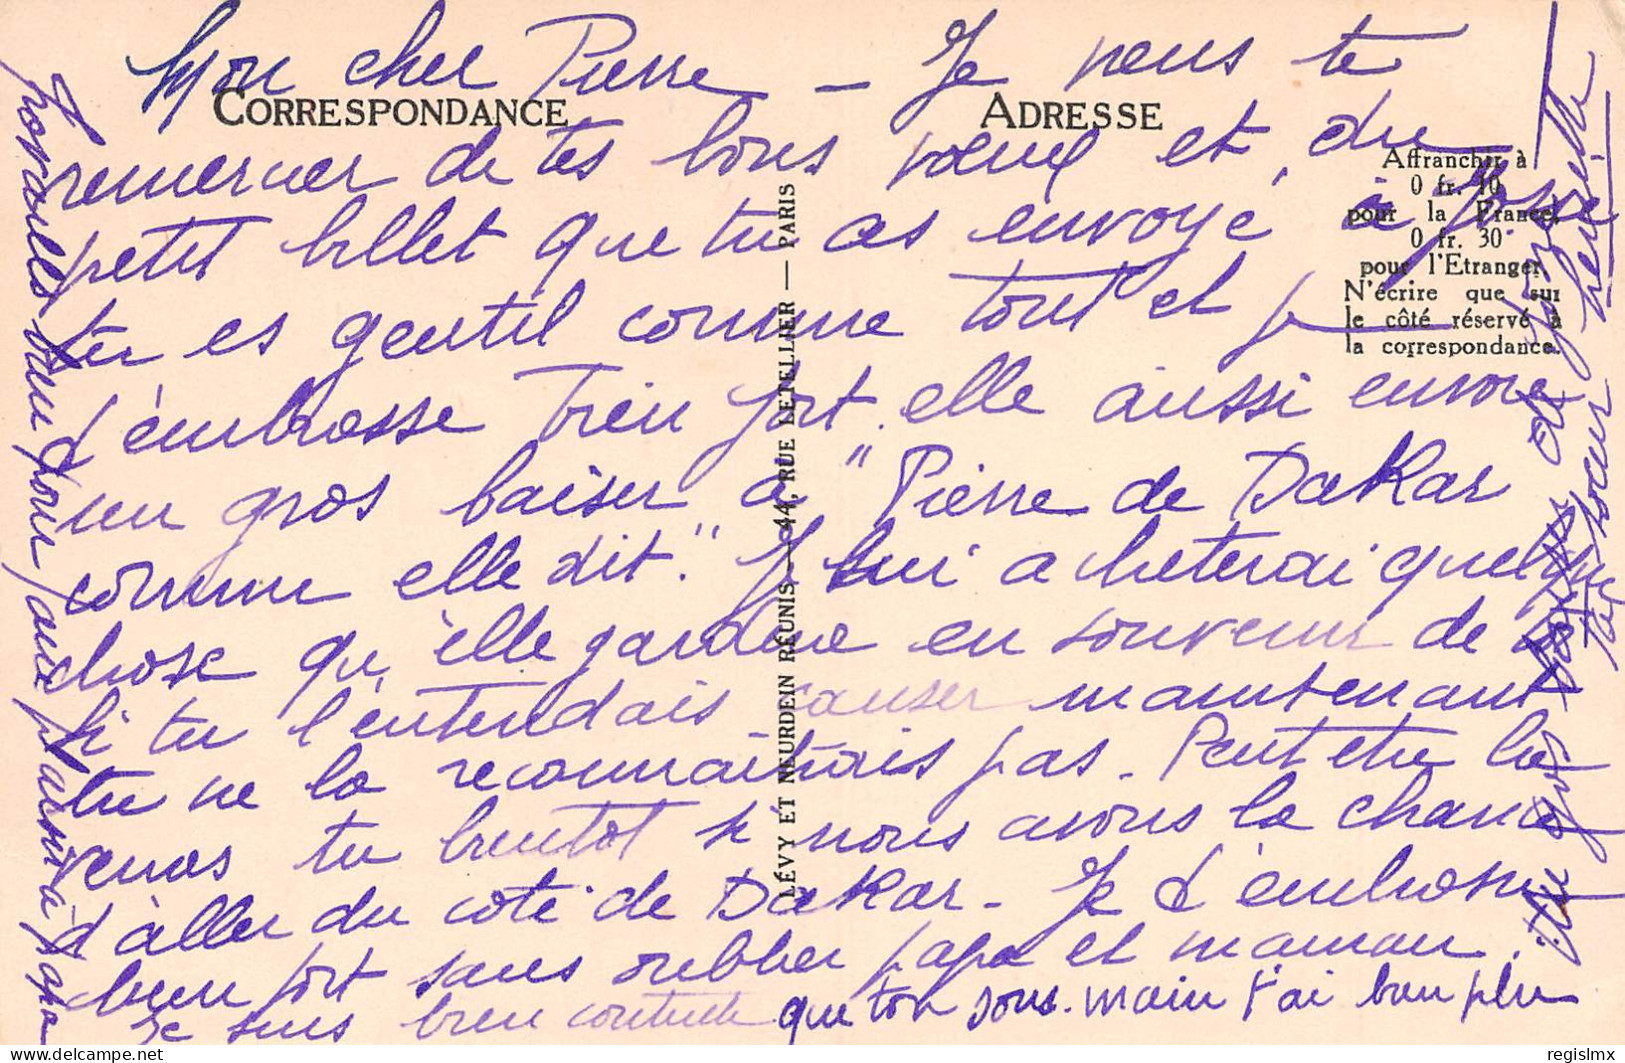 Mon cher Pierre — Je veux te
CORRESPONDANCE
ADRESSE
remercier de tes bons voeux et, du
petit billet que tu as envoyé, à Josse
tu es gentil comme tout et je
t'embrasse bien fort. elle aussi envoie
un gros baiser à "Pierre de Dakar
comme elle dit." Je lui acheterai quelque
chose qu'elle gardera en souvenir de
si tu l'entendais causer maintenant
tu ne la reconnaîtrais pas. Peut etre la
verras tu bientot si nous avons la chance
d'aller du coté de Dakar — Je t'embrasse
bien fort sans oublier papa et maman.
Je suis bien contente que ton sous-main t'ai bien plu
Affranchir à
0 fr. 10
pour la France,
0 fr. 30
pour l'Etranger.
N'écrire que sur
le côté réservé à
la correspondance.
LÉVY ET NEURDEIN RÉUNIS — 44, RUE LETELLIER — PARIS
un gros de
ta soeur
regislmx
delcampe.net